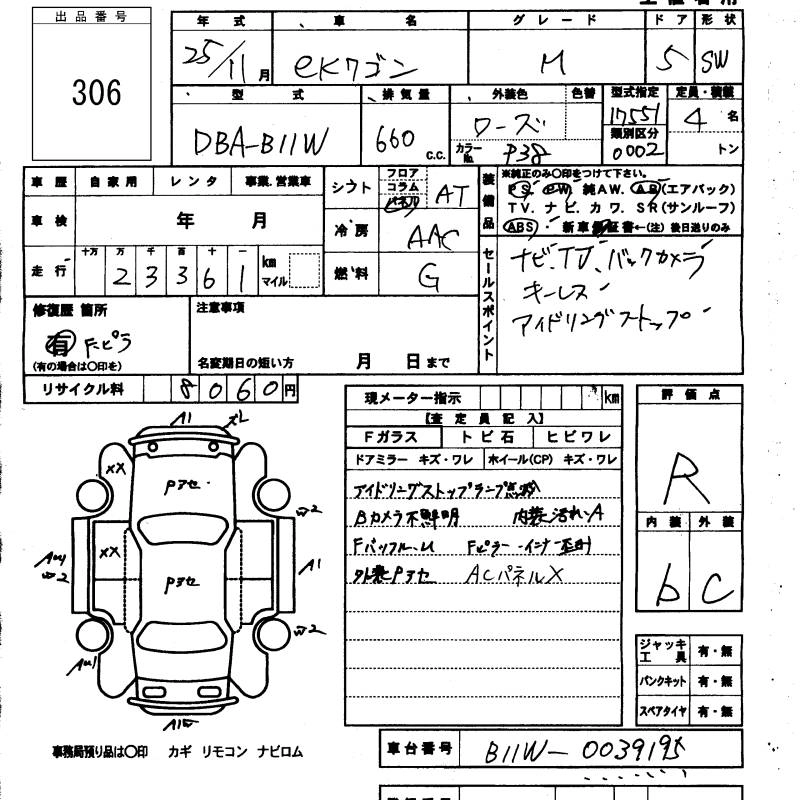 出品番号
306
年式 車名 グレード ドア 形状
25/11月 eKワゴン M 5 SW
型式 排気量 外装色 色替 型式指定 定員・積載
DBA-B11W 660 c.c. ローズ 17551 4名
カラーNo. P38 類別区分 0002 トン
車歴 自家用 レンタ 事業.営業車
車検 年 月
走行 十万 万 千 百 十 一
2 3 3 6 1 km マイル
シフト フロア コラム AT
冷房 AAC
燃料 G
装備品
※純正のみ〇印をつけて下さい。
PS PW 純AW. AB(エアバック)
TV. ナビ. カワ. SR(サンルーフ)
ABS・ 新車保証書←(注) 後日送りのみ
セールスポイント
ナビ、TV、バックカメラ
キーレス
アイドリングストップ
修復歴 箇所
有 Fピラ
(有の場合は〇印を)
注意事項
名変期日の短い方 月 日まで
リサイクル料 8060円
現メーター指示 km
【査定員記入】
Fガラス トビ石 ヒビワレ
ドアミラー キズ・ワレ ホイール(CP) キズ・ワレ
アイドリングストップランプ点
Bカメラ不鮮明 内装汚れA
Fピラーインナー
外装Pヌセ ACパネルX
評価点
R
内装 外装
b C
ジャッキ 工具 有・無
パンクキット 有・無
スペアタイヤ 有・無
A1
XX
XX
W2
A1
W2
W2
事務局預り品は〇印 カギ リモコン ナビロム
車台番号 B11W-0039195